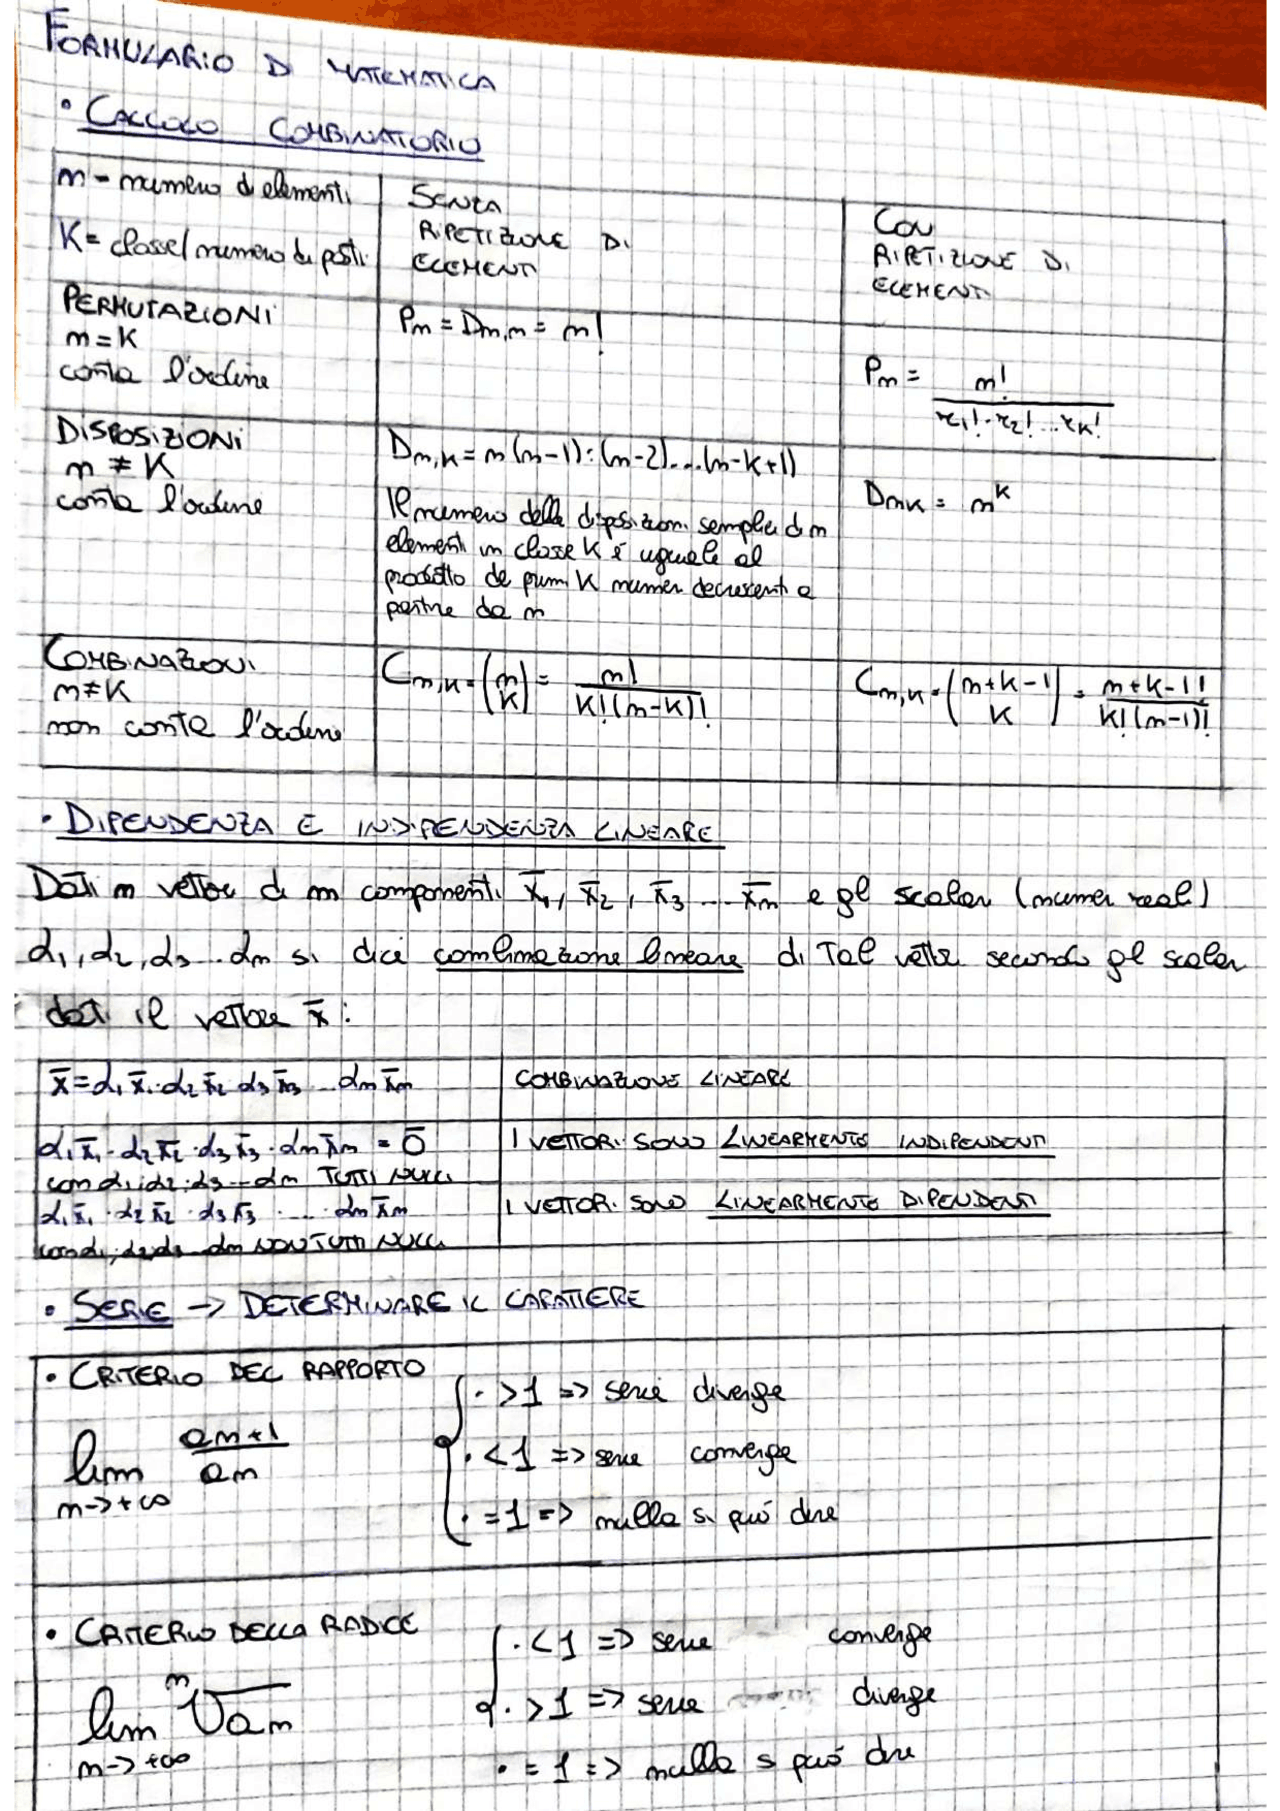 FORMULARIO DI MATEMATICA
• CALCOLO COMBINATORIO
n = numero di elementi
K = classe/numero di posti
SENZA
RIPETIZIONE DI
ELEMENTI
CON
RIPETIZIONE DI
ELEMENTI
PERMUTAZIONI
n = K
conta l'ordine
Pn = Dn,n = n!
Pn = n! / r1!·r2!...rK!
DISPOSIZIONI
n ≠ K
conta l'ordine
Dn,K = n(n-1)·(n-2)...(n-K+1)
Il numero delle disposizioni semplici di n
elementi in classe K é uguale al
prodotto dei primi K numeri decrescenti a
partire da n
DnK = n^K
COMBINAZIONI
n ≠ K
non conta l'ordine
Cn,K = (n K) = n! / K!(n-K)!
Cn,K = (n+K-1 K) = n+K-1! / K!(n-1)!
• DIPENDENZA E INDIPENDENZA LINEARE
Dati n vettori di m componenti x̄1, x̄2, x̄3 ... x̄n e gli scalari (numeri reali)
α1, α2, α3 ... αn si dice combinazione lineare di tali vettori secondo gli scalari
dati il vettore x̄:
x̄ = α1x̄1·α2x̄2 α3x̄3 ... αnx̄n
COMBINAZIONE LINEARE
α1x̄1·α2x̄2·α3x̄3·αnx̄n = 0̄
con α1;α2;α3...αn TUTTI NULLI
I VETTORI SONO LINEARMENTE INDIPENDENTI
α1x̄1·α2x̄2·α3x̄3·...·αnx̄n
con α1;α2α3...αn NON TUTTI NULLI
I VETTORI SONO LINEARMENTE DIPENDENTI
• SERIE -> DETERMINARE IL CARATTERE
• CRITERIO DEL RAPPORTO
lim n->+∞ an+1 / an
· >1 => serie diverge
· <1 => serie converge
· =1 => nulla si puó dire
• CRITERIO DELLA RADICE
lim n->+∞ ⁿ√an
· <1 => serie converge
· >1 => serie diverge
· =1 => nulla si puó dire